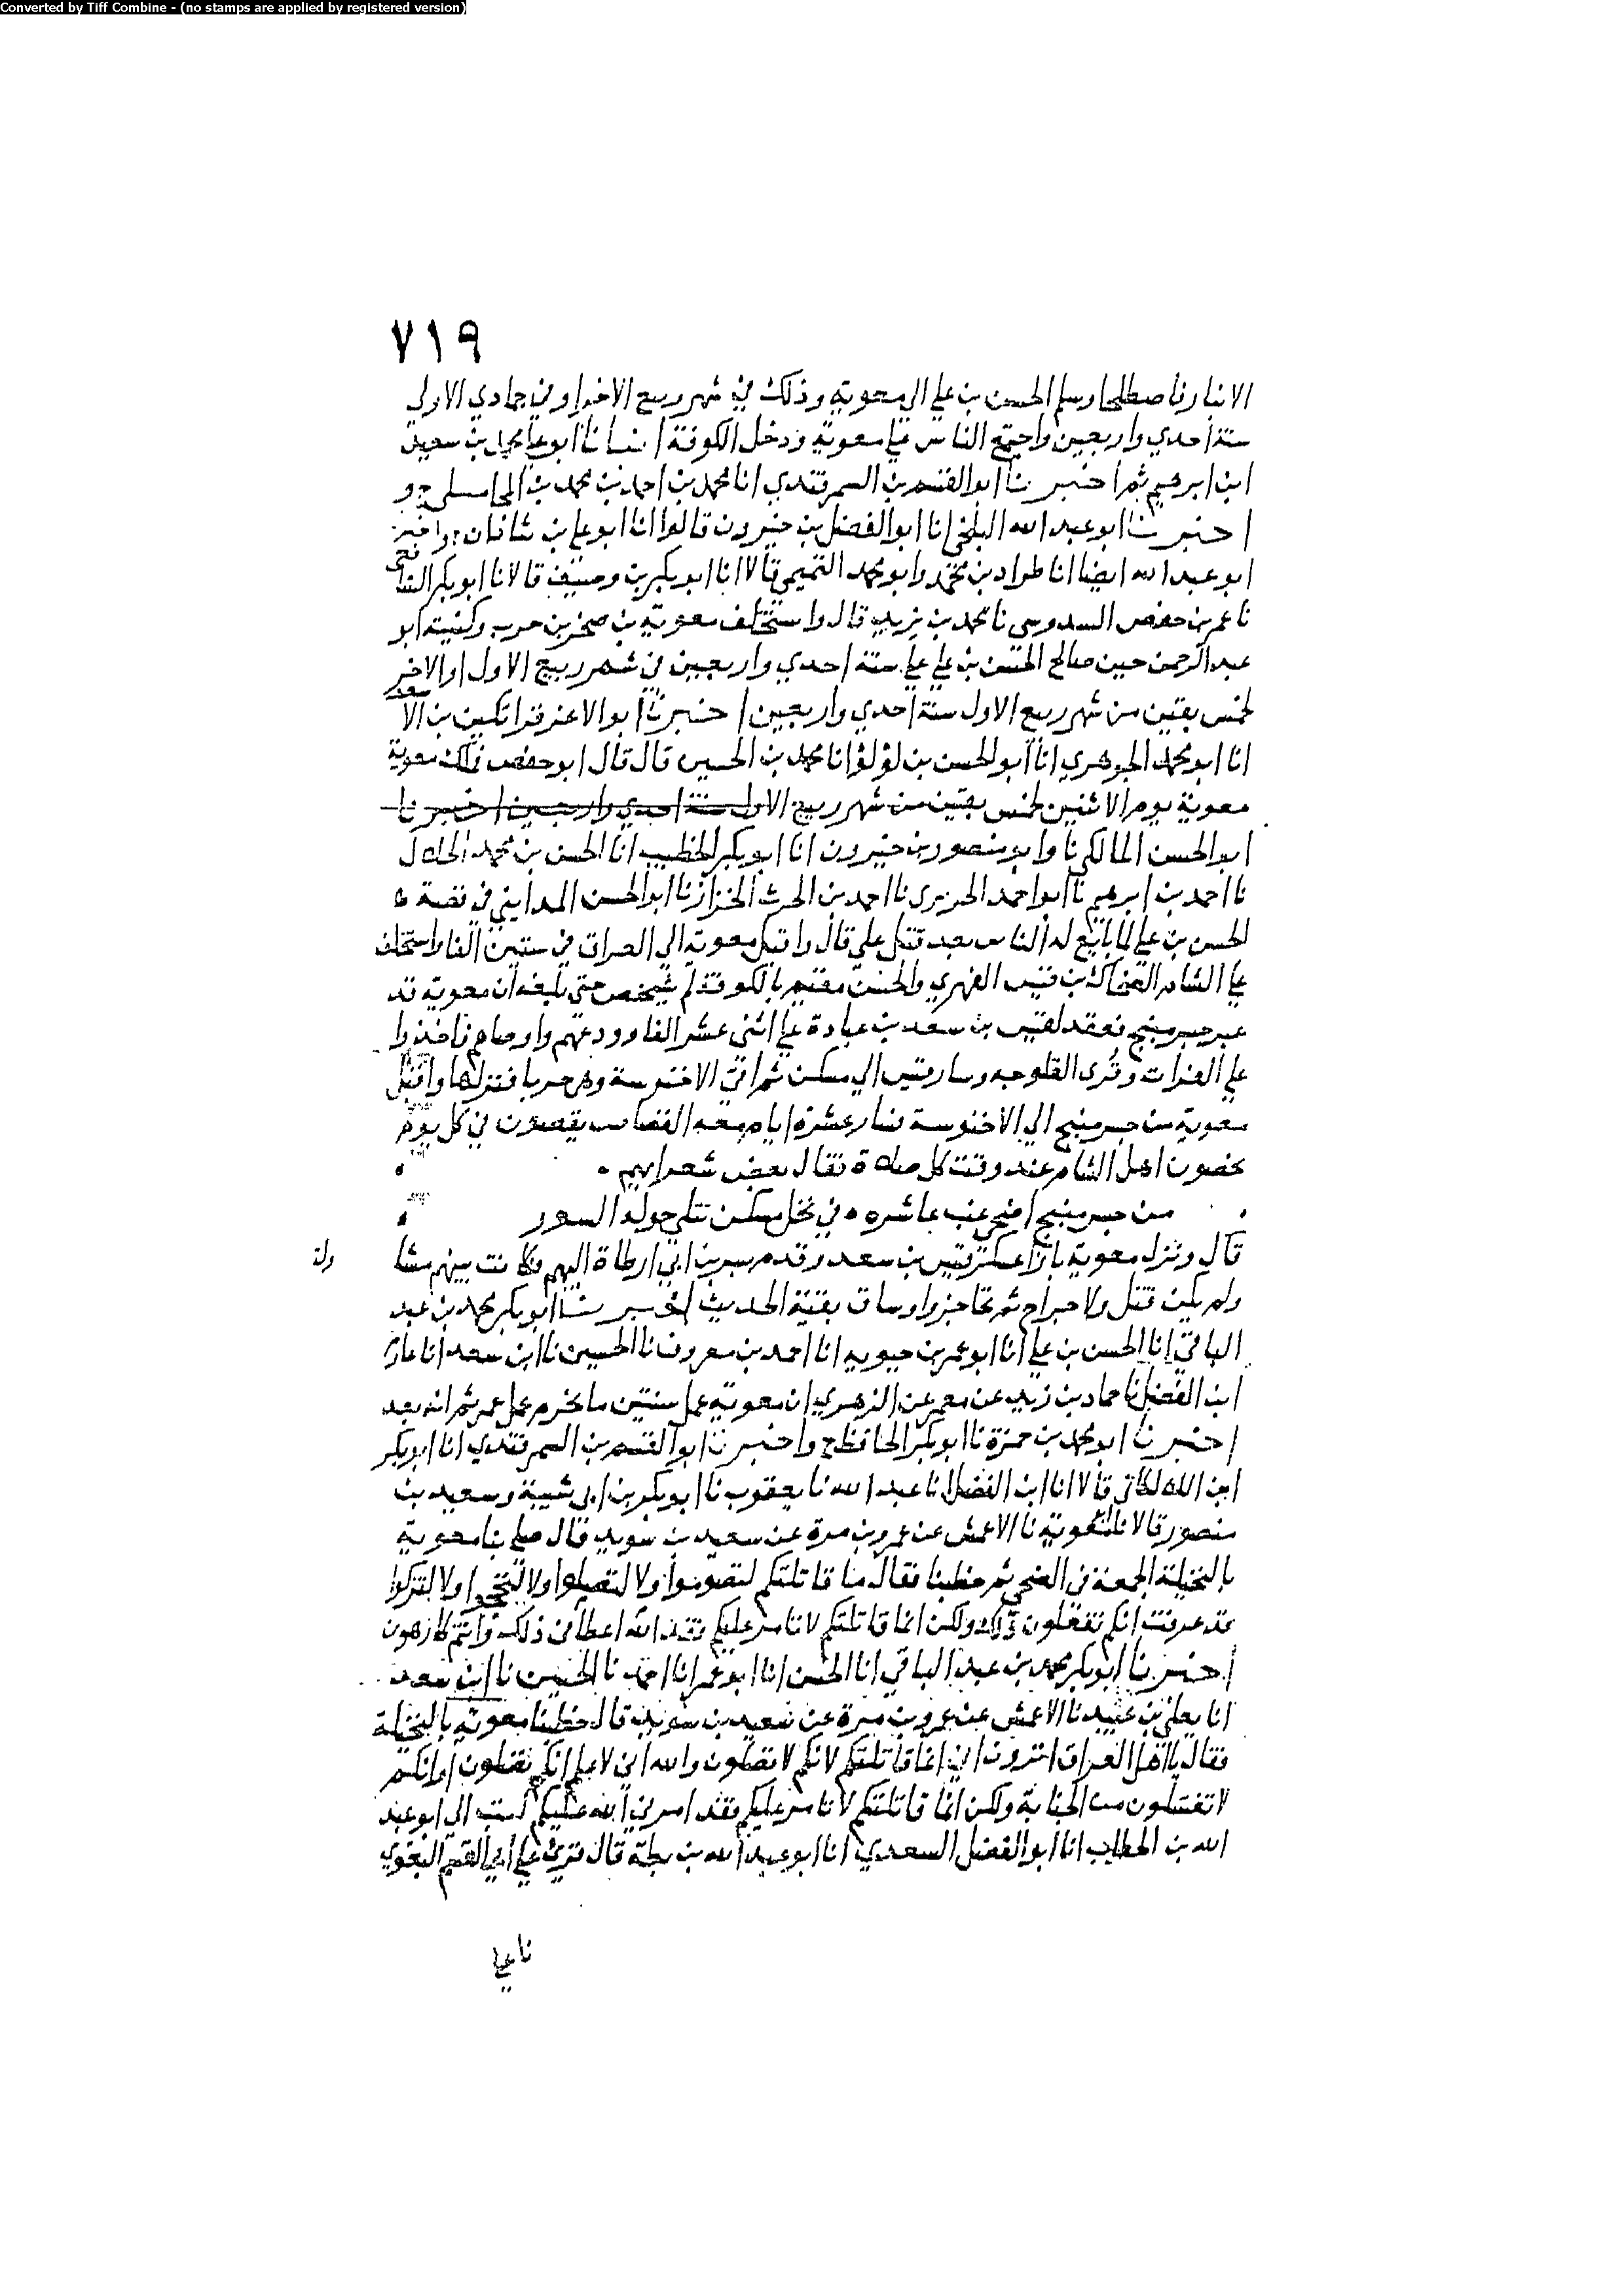 Converted by Tiff Combine - (no stamps are applied by registered version)
٧١٩
الانبار فاصطلحا وسلم الحسن بن علي الى معوية وذلك في شهر ربيع الاخر او في جمادي الاولي
سنة احدي واربعين واجتمع الناس علي معوية ودخل الكوفة انبانا ابو علي محمد بن سعيد
ابن ابرهيم ثم اخبرنا ابو القسم بن السمرقندي انا محمد بن احمد بن محمد بن
اخبرنا ابو عبد الله البلخي انا ابو الفضل بن خيرون قالوا انا ابو علي بن شاذان ح واخبرنا
ابو عبد الله ايضا انا طراد بن محمد وابو محمد التميمي قالا انا ابو بكر بن وصيف قالا نا ابو بكر الشافعي
نا عمر بن حفص السدوسي نا محمد بن يزيد قال واستخلف معوية بن صخر بن حرب وكنيته ابو
عبد الرحمن حين صالح الحسن بن علي علي سنة احدي واربعين في شهر ربيع الاول او الاخر
لخمس بقين من شهر ربيع الاول سنة احدي واربعين اخبرنا ابو الاعز قراتكين بن الاسعد
انا ابو محمد الجوهري انا ابو الحسن بن لؤلؤ انا محمد بن الحسين قال قال ابو حفص ملك معوية
معوية يوم الاثنين لخمس بقين من شهر ربيع الاول سنة احدي واربعين اخبرنا
ابو الحسن المالكي نا وابو منصور بن خيرون انا ابو بكر الخطيب انا الحسن بن محمد الخلال
نا احمد بن ابرهيم نا ابو احمد الحريري نا احمد بن الحرث الخزاز نا ابو الحسن المدايني في قصة
الحسن بن علي لما بايع له الناس بعد قتل علي قال واقبل معوية الي العراق في ستين الفا واستخلف
علي الشام الضحاك بن قيس الفهري والحسن مقيم بالكوفة لم يشخص حتى بلغه ان معوية قد
عبر جسر منبج فعقد لقيس بن سعد بن عبادة علي اثنى عشر الفا وودعهم واوصاهم فاخذوا
علي الفرات وقرى الفلوجه وسار قيس الي مسكن ثم اتى الاخنوسة وهي حربا فنزلها واقبل
معوية من جسر منبج الي الاخنوسة فسار عشرة ايام معه القصاص يقصون في كل يوم
يحضون اهل الشام عند وقت كل صلاة فقال بعض شعرايهم
من جسر منبج اضحى غب عاشره في نخل مسكن تتلى حوله السور
قال ونزل معوية بازا عسكر قيس بن سعد وقدم بسر بن ابي ارطاة اليهم فكانت بينهم مشا
ولة
ولم يكن قتل ولا جراح ثم تحاجزوا وساق بقية الحديث اخبرنا ابو بكر محمد بن عبد
الباقي انا الحسن بن علي انا ابو عمر بن حيويه انا احمد بن معروف نا الحسين نا ابن سعد انا عارم
ابن الفضل نا حماد بن زيد عن معمر عن الزهري ان معوية عمل سنتين ما يخرم عمل عمر ثم انه بعد
اخبرنا ابو محمد بن حمزة نا ابو بكر الحافظ ح واخبرنا ابو القسم بن السمرقندي انا ابو بكر
ابن اللالكاتي قالا انا ابن الفضل انا عبد الله نا يعقوب نا ابو بكر بن ابي شيبة وسعيد بن
منصور قالا نا ابو معوية نا الاعمش عن عمرو بن مرة عن سعيد بن سويد قال صلى بنا معوية
بالنخيلة الجمعة في الضحى ثم خطبنا فقال ما قاتلتكم لتصوموا ولا لتصلوا ولا لتحجوا ولا لتزكوا
قد عرفت انكم تفعلون ذلك ولكن انما قاتلتكم لاتامر عليكم فقد الله اعطاني ذلك وانتم كارهون
اخبرنا ابو بكر محمد بن عبد الباقي انا الحسن انا ابو عمر انا احمد نا الحسين نا ابن سعد
انا يعلى بن عبيد نا الاعمش عن عمرو بن مرة عن سعيد بن سويد قال خطبنا معوية بالنخيلة
فقال يا اهل العراق اترون اني انما قاتلتكم لانكم لا تصلون والله اني لاعلم انكم تصلون او انكم
لا تغتسلون من الجنابة ولكن انما قاتلتكم لاتامر عليكم فقد امرني الله عليكم كتب الي ابو عبد
الله بن الحطاب انا ابو الفضل السعدي انا ابو عبد الله بن بطة قال قرئ علي ابي القسم البغوي
نا علي